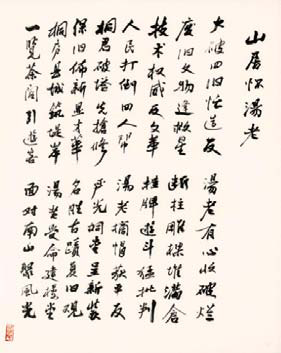 山居怀汤老
大破四旧忙造反 汤老有心收破烂
废旧文物逢救星 断柱雕梁堆满仓
技术权威反文革 挂牌游斗猛批判
人民打倒四人帮 汤老摘帽获平反
桐君破塔先抢修 严光祠堂呈新装
保旧 新显才华 名胜古蹟复旧观
桐庐县城筑堤岸 汤老受命建楼堂
一览茶阁引游客 面对南山醉风光